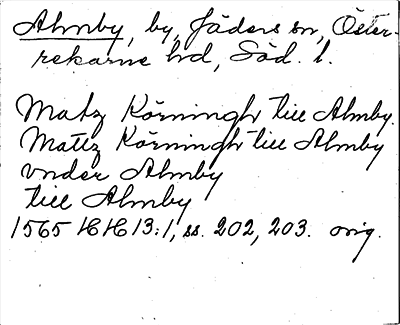 Almby, by, Jäders sn, Öster-
rekarne hd, Söd. l.
Matz Körningh till Almby.
Mattz Körningh till Almby
vnder Almby
till Almby
1565 HH 13:1, ss. 202, 203. orig.